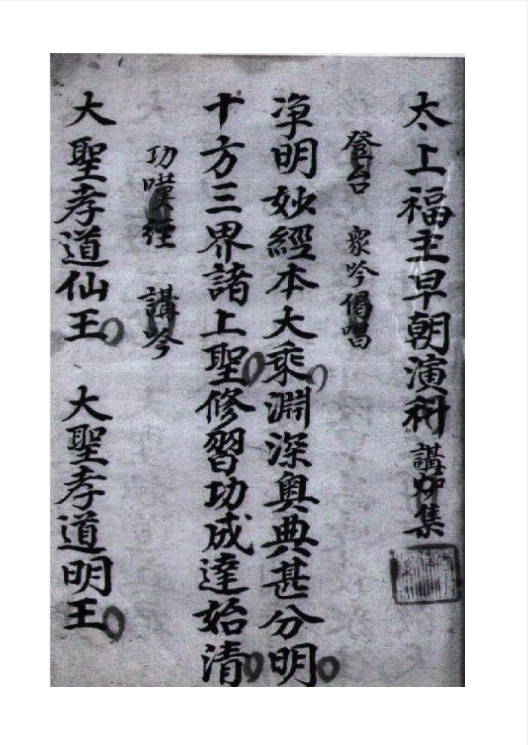 太上福主早朝演科 講集
登台 衆吟偈唱
淨明妙經本大乘淵深奧典甚分明
十方三界諸上聖修習功成達始清
功嘆經 講
大聖孝道仙王 大聖孝道明王